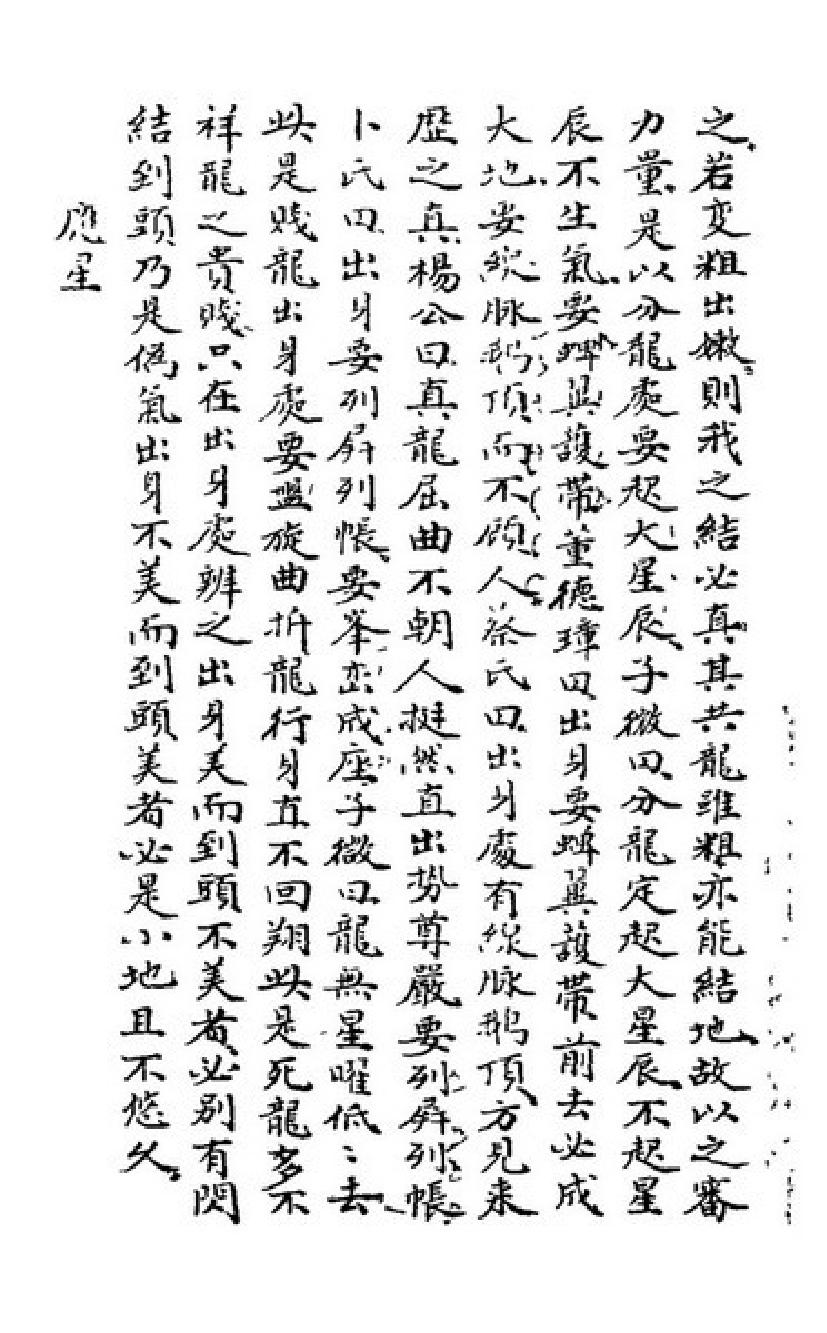 之若变粗出嫩則我之結必真其共龍雖粗亦能結地故以之審
力量是以分龍處要起大星辰子微曰分龍定起大星辰不起星
辰不生氣要蟬與護帶董德璋曰出身要蟬翼護帶前去必成
大地要線脉鵝頂而不顧人蔡氏曰出身處有線脉鵝頂方見来
歷之真楊公曰真龍屈曲不朝人挺然直出勢尊嚴要列屏列帳
卜氏曰出身要列屏列帳要峯巒成座子微曰龍無星曜低〻去
此是賤龍出身處要盤旋曲折龍行身直不回翔此是死龍多不
祥龍之貴賤只在出身處辨之出身美而到頭不美者必別有閃
結到頭乃是偽氣出身不美而到頭美者必是小地且不悠久
應星